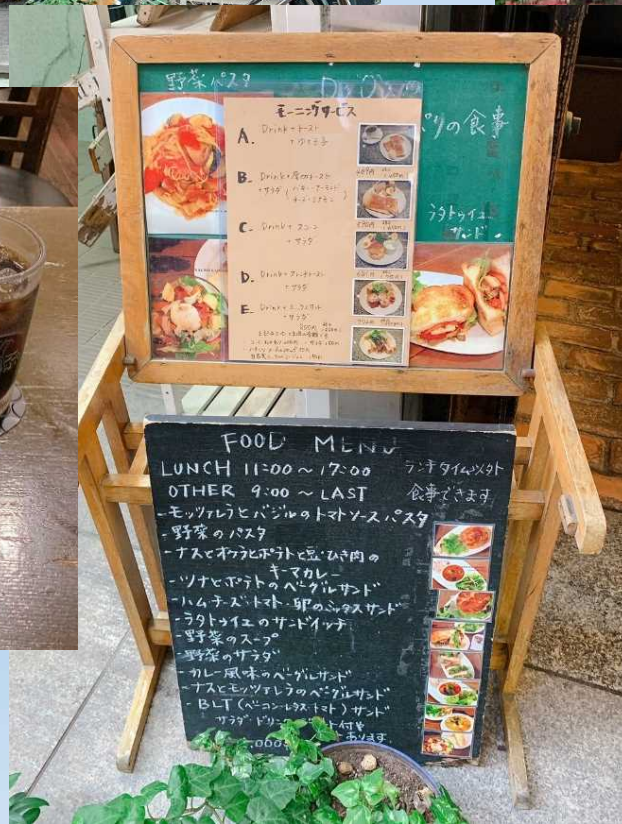 野菜パスタ
の食事
ラタトゥイユ
サンド
モーニングサービス
A. Drink + トースト
+ ゆで玉子
B. Drink + 厚切トースト
+ サラダ
C. Drink + スコーン
+ サラダ
D. Drink + フレンチトースト
+ サラダ
E. Drink +
+ サラダ
FOOD MENU
LUNCH 11:00 ~ 17:00
ランチタイム以外ト
OTHER 9:00 ~ LAST
食事できます
-モッツァレラとバジルのトマトソースパスタ
-野菜のパスタ
-ナスとオクラとポテトと豆・ひき肉の
キーマカレー
-ツナとポテトのベーグルサンド
-ハム・チーズ・トマト・卵のミックスサンド
-ラタトゥイユのサンドイッチ
-野菜のスープ
-野菜のサラダ
-カレー風味のベーグルサンド
-ナスとモッツァレラのベーグルサンド
-BLT（ベーコン・レタス・トマト）サンド
サラダ・ドリンク 付￥
あります